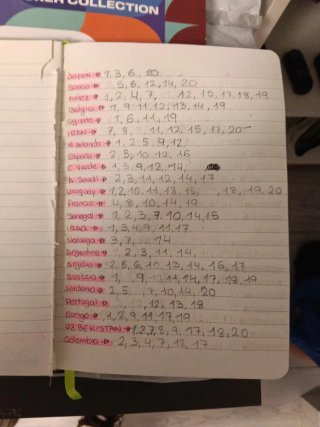 COLLECTION
Japon → 1, 3, 6, 20
Suecia → 5, 6, 12, 14, 20
Tunez → 1, 2, 4, 7, 12, 15, 17, 18, 19
Belgica → 1, 9, 11, 12, 13, 14, 19
Egipto → 1, 6, 11, 19
IRAN → 7, 8, 11, 12, 15, 17, 20
N. Zelanda → 1, 2, 5, 9, 12
España → 2, 5, 10, 12, 16
C. Verde → 1, 5, 9, 12, 14,
A. Saudi → 2, 3, 11, 12, 14, 17
Uruguay → 1, 2, 10, 11, 13, 15, 18, 19, 20
Francia → 4, 8, 10, 14, 19
Senegal → 1, 2, 3, 7, 10, 14, 15
IRAQ → 1, 3, 4, 9, 11, 17
Noruega → 3, 7, 14
Argentina → 2, 3, 11, 14
Argelia → 2, 5, 6, 10, 13, 14, 16, 17
Austria → 1, 9, 11, 14, 17, 18, 19
Jordania → 2, 5, 7, 10, 14, 20
Portugal → 12, 13, 18
Congo → 1, 2, 9, 11, 17, 19
UZBEKISTAN → 1, 2, 7, 8, 9, 17, 18, 20
Colombia → 2, 3, 4, 7, 12, 17